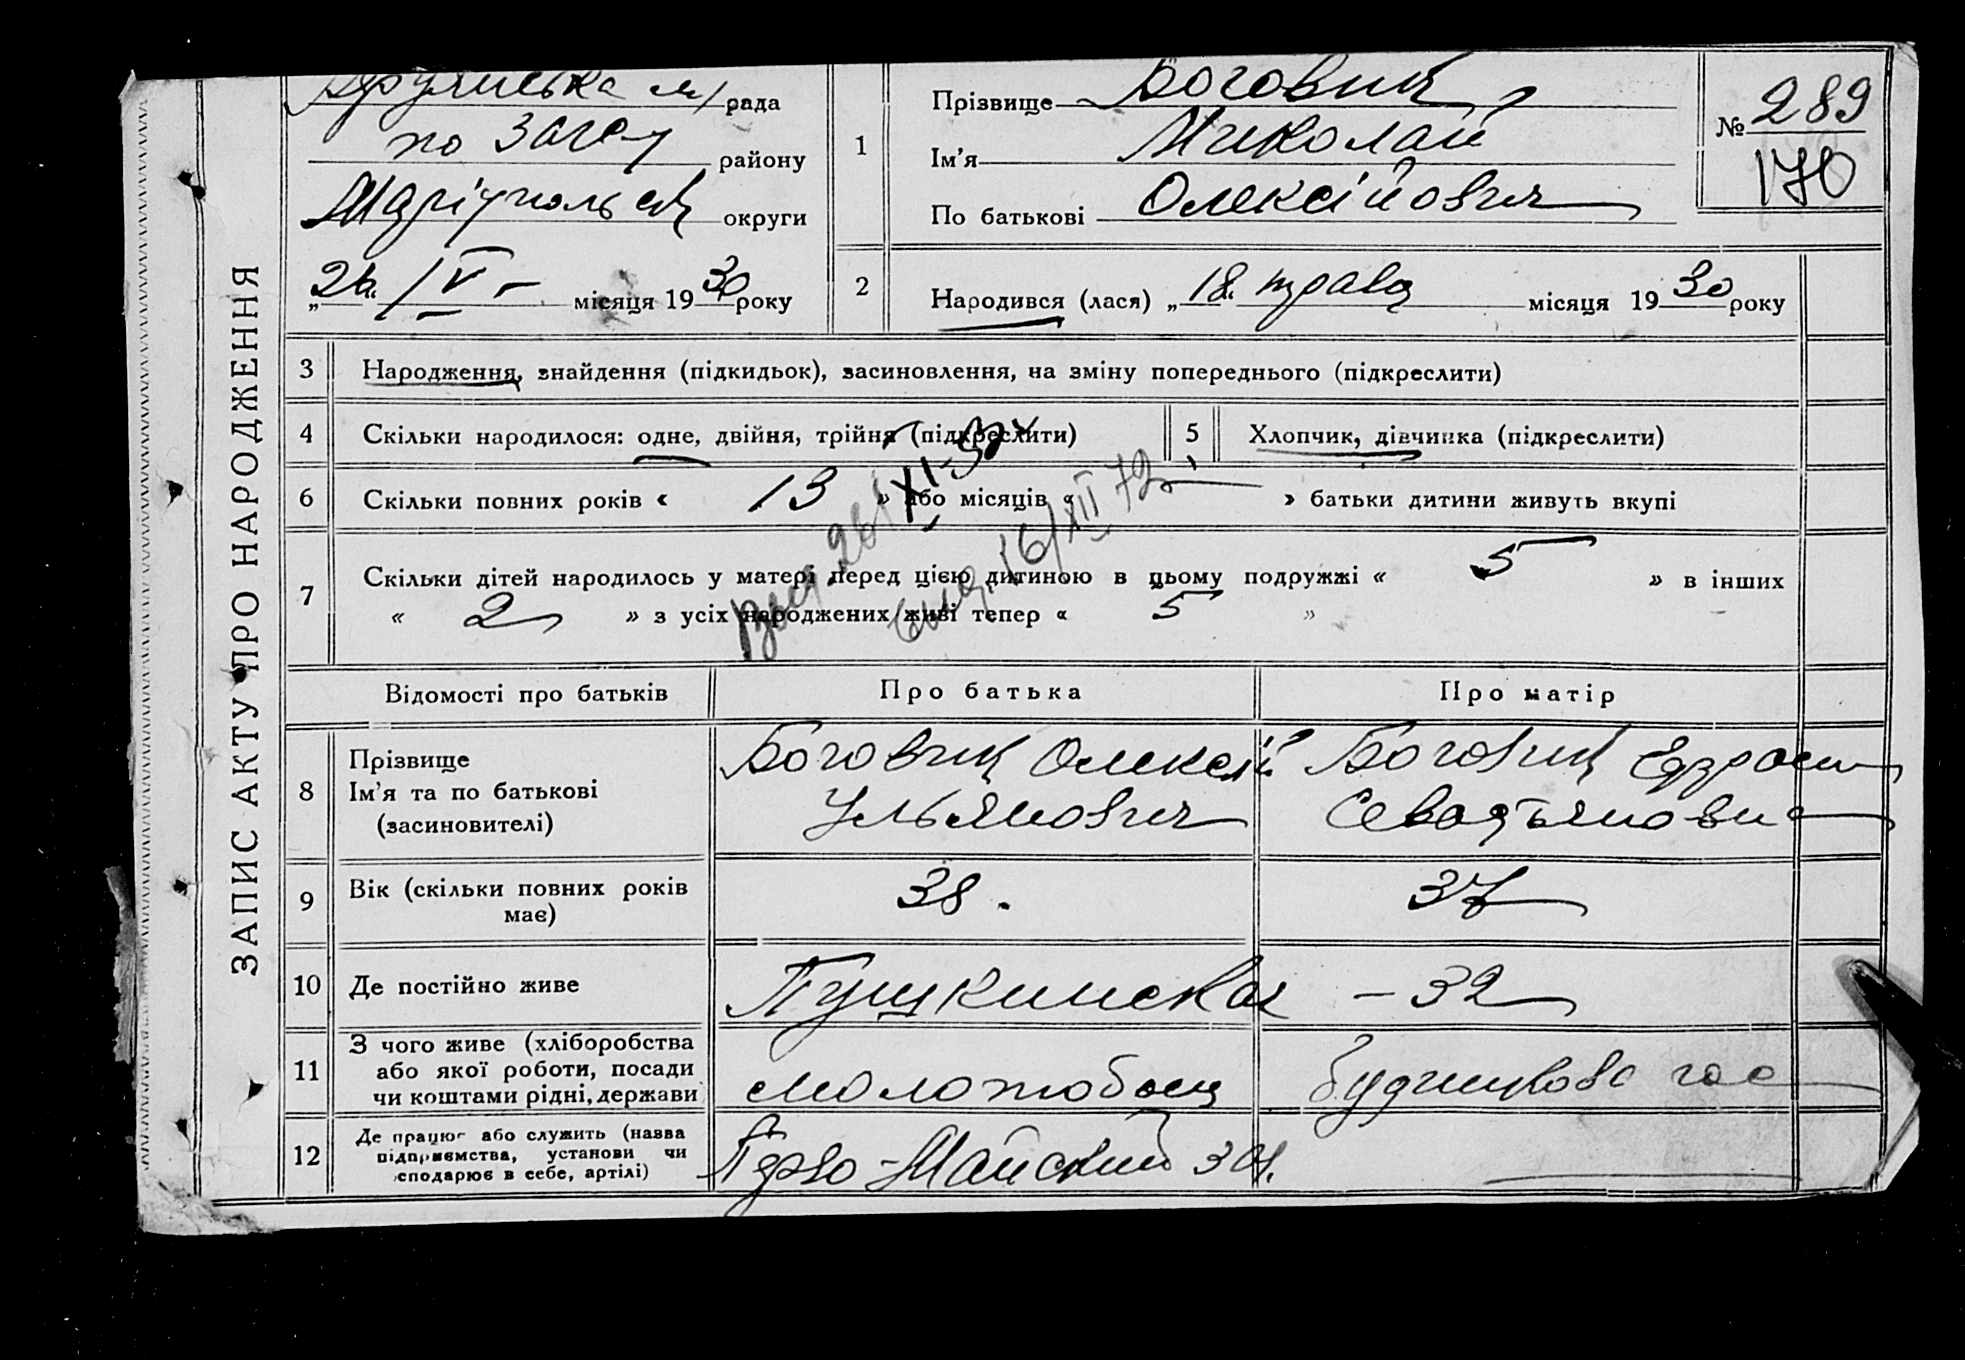 ЗАПИС АКТУ ПРО НАРОДЖЕННЯ
рада
по району
Маріупольськ округи
„26“ IV – місяця 1930 року
1
Прізвище Боговиц
Ім'я Миколай
По батькові Олексійович
№ 289
170
2
Народився (лася) „18“ травц місяця 1930 року
3 Народження, знайдення (підкидьок), засиновлення, на зміну попереднього (підкреслити)
4 Скільки народилося: одне, двійня, трійня (підкреслити)
5 Хлопчик, дівчинка (підкреслити)
6 Скільки повних років « 13 » або місяців « — » батьки дитини живуть вкупі
7 Скільки дітей народилось у матері перед цією дитиною в цьому подружжі « 5 » в інших
« 2 » з усіх народжених живі тепер « 5 »
16/XII 72
Відомості про батьків Про батька Про матір
8 Прізвище
Ім'я та по батькові
(засиновителі)
Боговиц Олексій
Ульянович
Боговиц
Севастьяновна
9 Вік (скільки повних років
має)
38. 37
10 Де постійно живе Пушкинская – 32
11 З чого живе (хліборобства
або якої роботи, посади
чи коштами рідні, держави
молотобоец
гос
12 Де працює або служить (назва
підприємства, установи чи
сподарює в себе, артілі)
Перво-Майский зав.